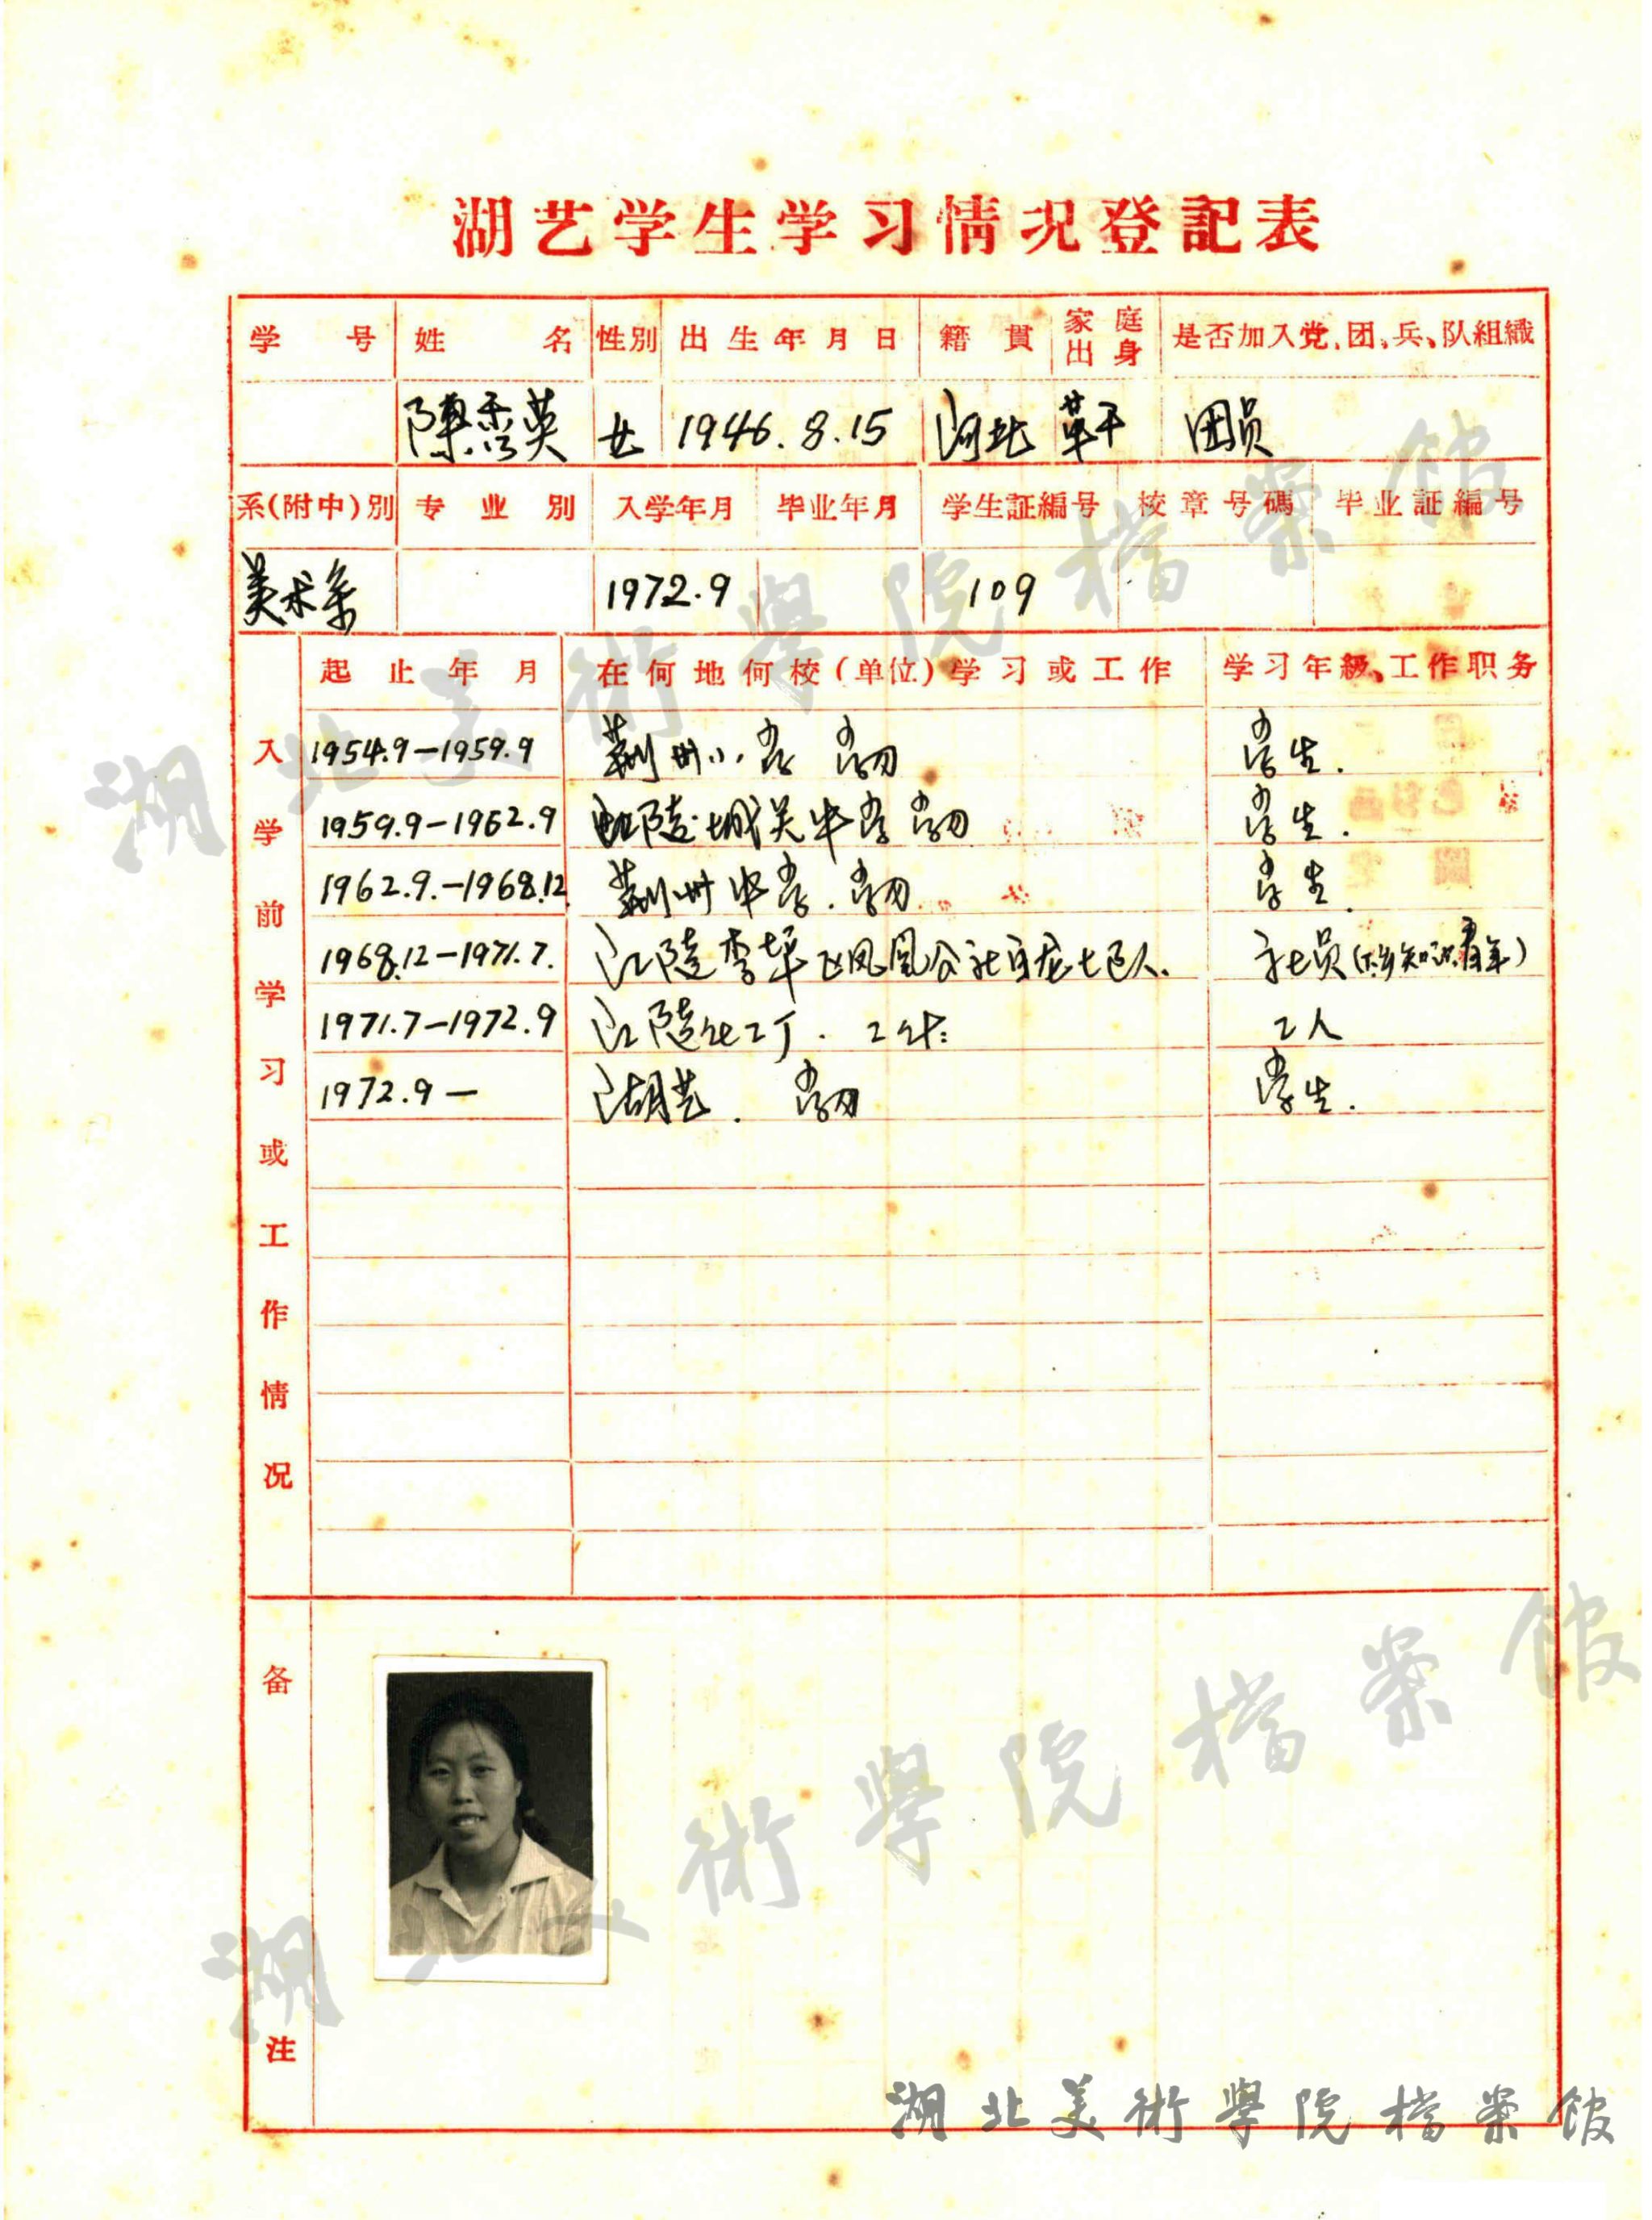 湖艺学生学习情况登記表
学号 姓名 性別 出生年月日 籍貫 家庭出身 是否加入党、团、兵、队组織
陳秀英 女 1946.8.15 河北 革干 团员
系(附中)別 专业別 入学年月 毕业年月 学生証編号 校章号碼 毕业証編号
美术系 1972.9 109
入学前学习或工作情况
起止年月 在何地何校(单位)学习或工作 学习年級、工作职务
1954.9—1959.9 荆州小学 学习 学生.
1959.9—1962.9 江陵城关中学学习 学生.
1962.9.—1968.12 荆州中学.学习. 学生.
1968.12—1971.7. 江陵李埠区凤凰公社 七队. 社员(下乡知识青年)
1971.7—1972.9 江陵化工厂.工作: 工人
1972.9— 湖艺.学习 学生.
备注
湖北美術學院檔案館
湖北美術學院檔案館
湖北美術學院檔案館